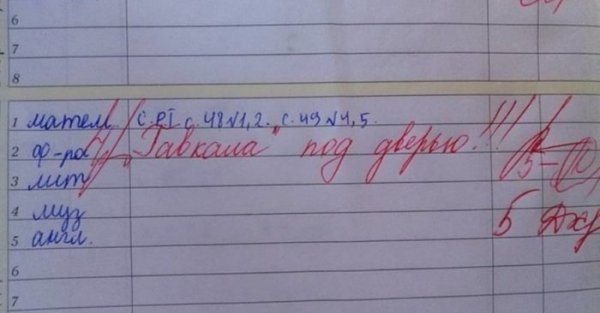 6
7
8
1 матем. с. 48 №1,2. с. 49 №4,5.
2 ф-ра "Гавкала" под дверью!!!
3 лит 5-
4 муз 5
5 англ.
6
7